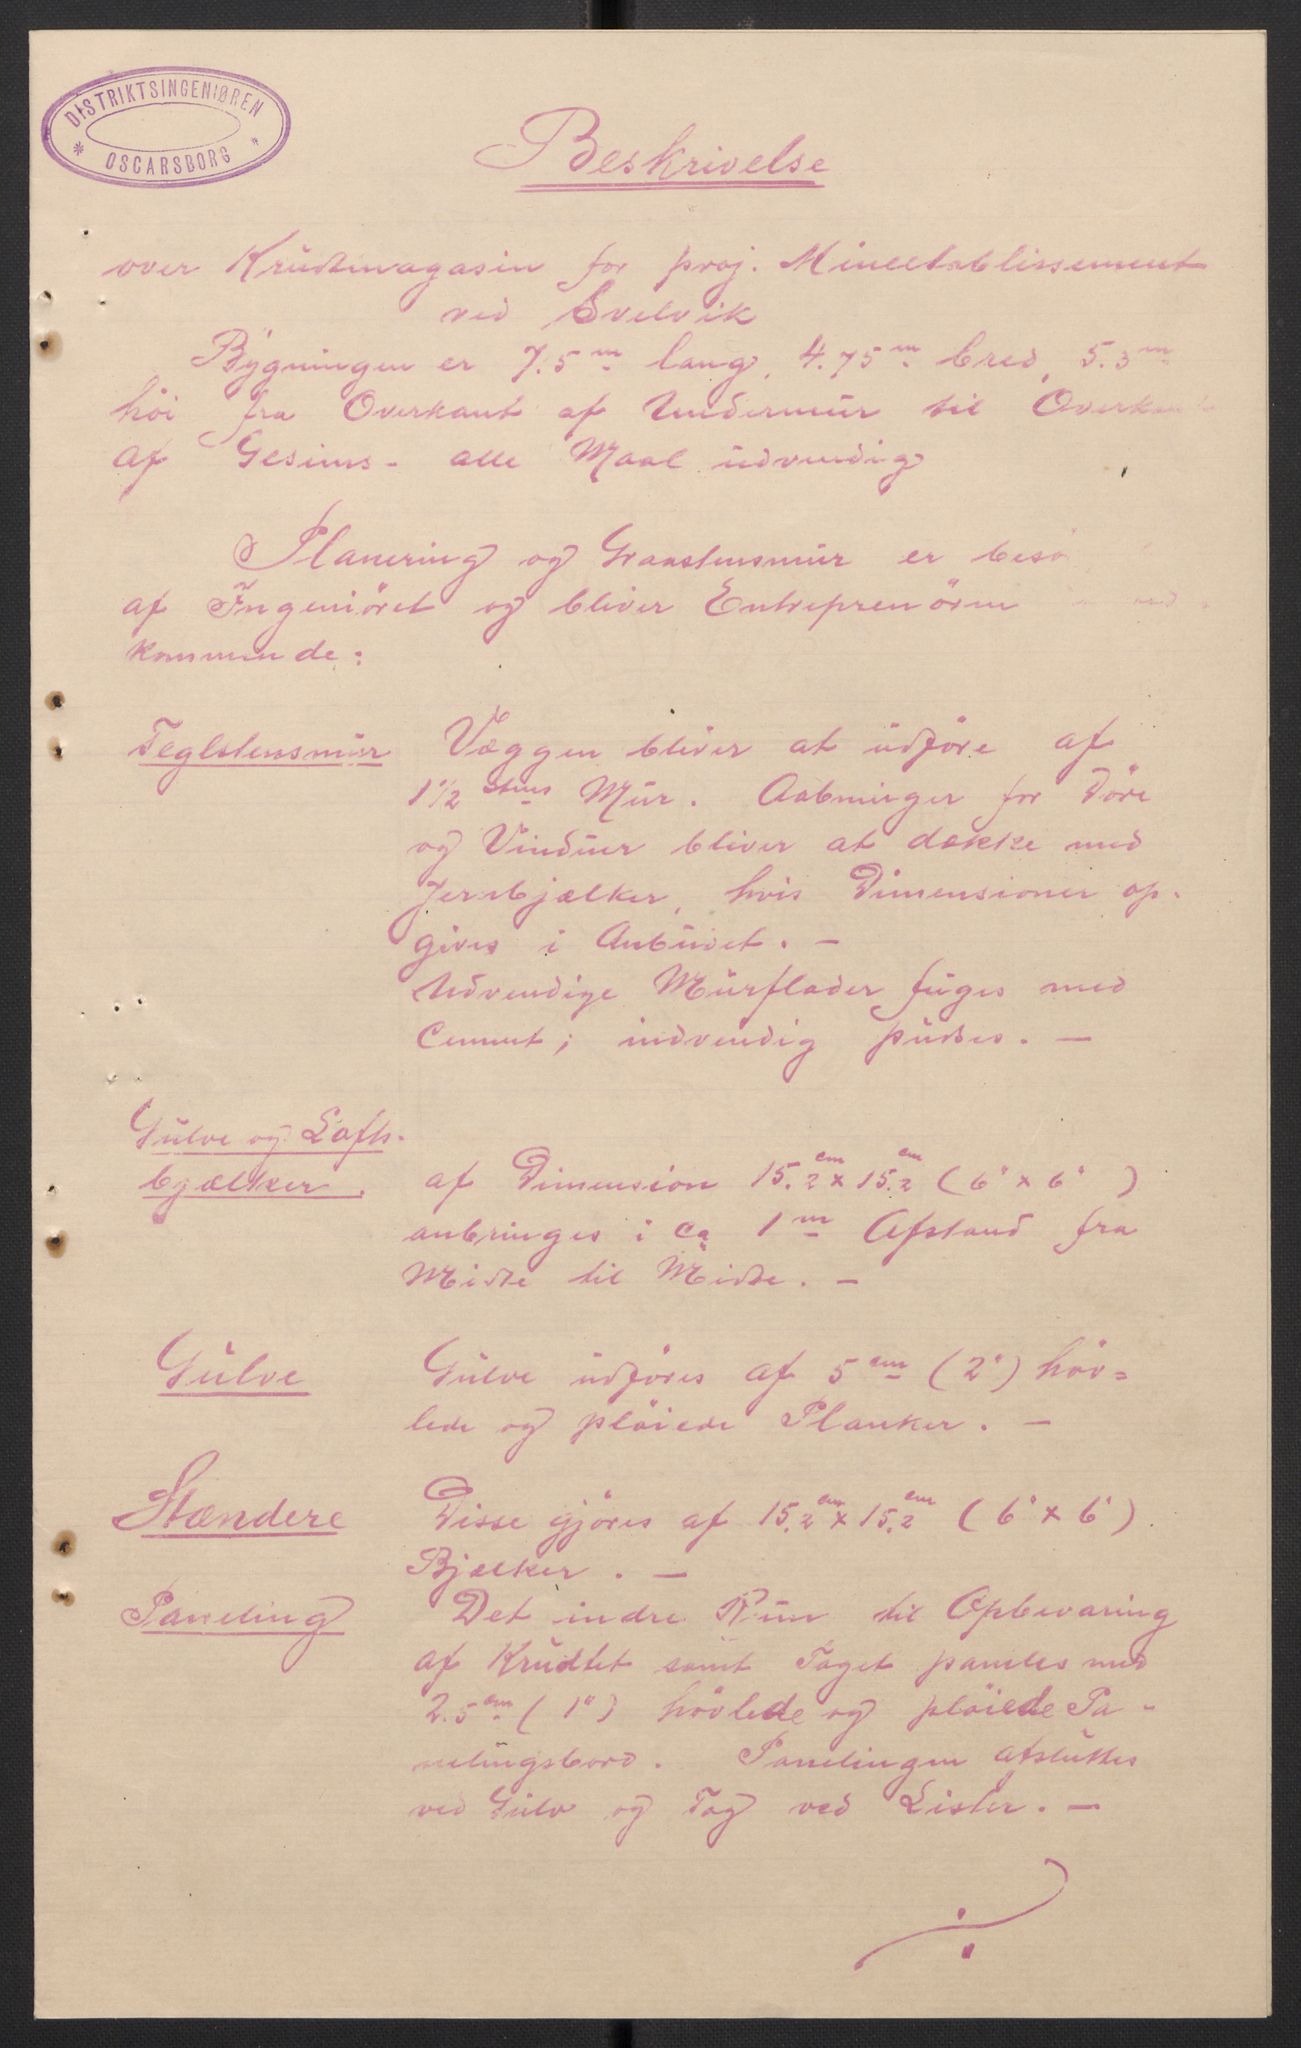 DISTRIKTSINGENIØREN
* OSCARSBORG *
Beskrivelse
over Krudtmagasin for proj. Mineetablissement
ved Svelvik
Bygningen er 7.5 m lang, 4.75 m bred, 5.3 m
höi fra Overkant af Undermur til Overkant
af Gesims - alle Maal udvendig
Planering og Graastensmur er besö
af Ingeniöret og bliver Entreprenören
kommende:
Teglstensmur Væggen bliver at udföre af
1 1/2 Stens Mur. Aabninger for Döre
og Vinduer bliver at dække med
Jernbjælker, hvis Dimensioner op-
gives i Anbudet. -
Udvendige Murflader fuges med
Cement; indvendig pudses. -
Gulve og Lofts-
bjælker. af Dimension 15.2 cm x 15.2 cm (6" x 6")
anbringes i ca 1 m Afstand fra
Midte til Midte. -
Gulve Gulve udföres af 5 cm (2") höv=
lede og plöiede Planker. -
Stændere Disse gjöres af 15.2 cm x 15.2 cm (6" x 6")
Bjælker. -
Paneling Det indre Rum til Opbevaring
af Krudtet samt Taget paneles med
2.5 cm (1") hövlede og plöiede Pa-
nelingsbord. Panelingen afsluttes
ved Gulv og Tag ved Lister. -